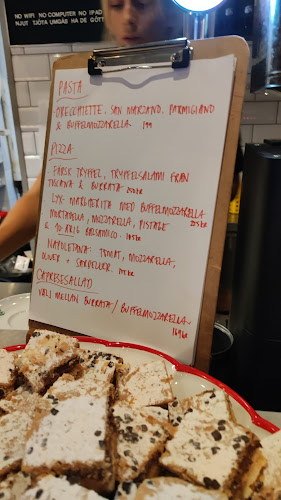 NO WIFI NO COMPUTER NO IPAD
NJUT TJÖTA UMGÅS HA DE GÖTT
PASTA
- ORECCHIETTE, SAN MARZANO, PARMIGIANO
& BUFFELMOZZARELLA 199
PIZZA
- FÄRSK TRYFFEL, TRYFFELSALAMI FRÅN
TOSCANA & BURRATA
- LYX MARGERITA MED BUFFELMOZZARELLA
MORTADELLA, MOZZARELLA, PISTAGE
& 10-ÅRIG BALSAMICO.
NAPOLETANA. TOMAT, MOZZARELLA,
OLIVER & SARDELLER.
CAPRESESALLAD
VÄLJ MELLAN BURRATA / BUFFELMOZZARELLA
169kr